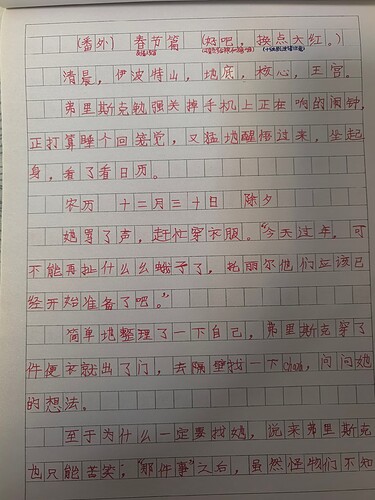 (番外) 春节篇 (好吧，换点大红。)
清晨，伊波特山，地底，核心，王宫。
弗里斯克勉强关掉手机上正在响的闹钟，
正打算睡个回笼觉，又猛地醒悟过来，坐起
身，看了看日历。
农历 十二月三十日 除夕
她骂了声，赶忙穿衣服。“今天过年，可
不能再扯什么幺蛾子了，托丽尔他们应该已
经开始准备了吧。”
简单地整理了一下自己，弗里斯克穿了
件便衣就出了门，去隔壁找一下Chara，问问她
的想法。
至于为什么一定要找她，说来弗里斯克
也只能苦笑；“那件事”之后，虽然怪物们不知